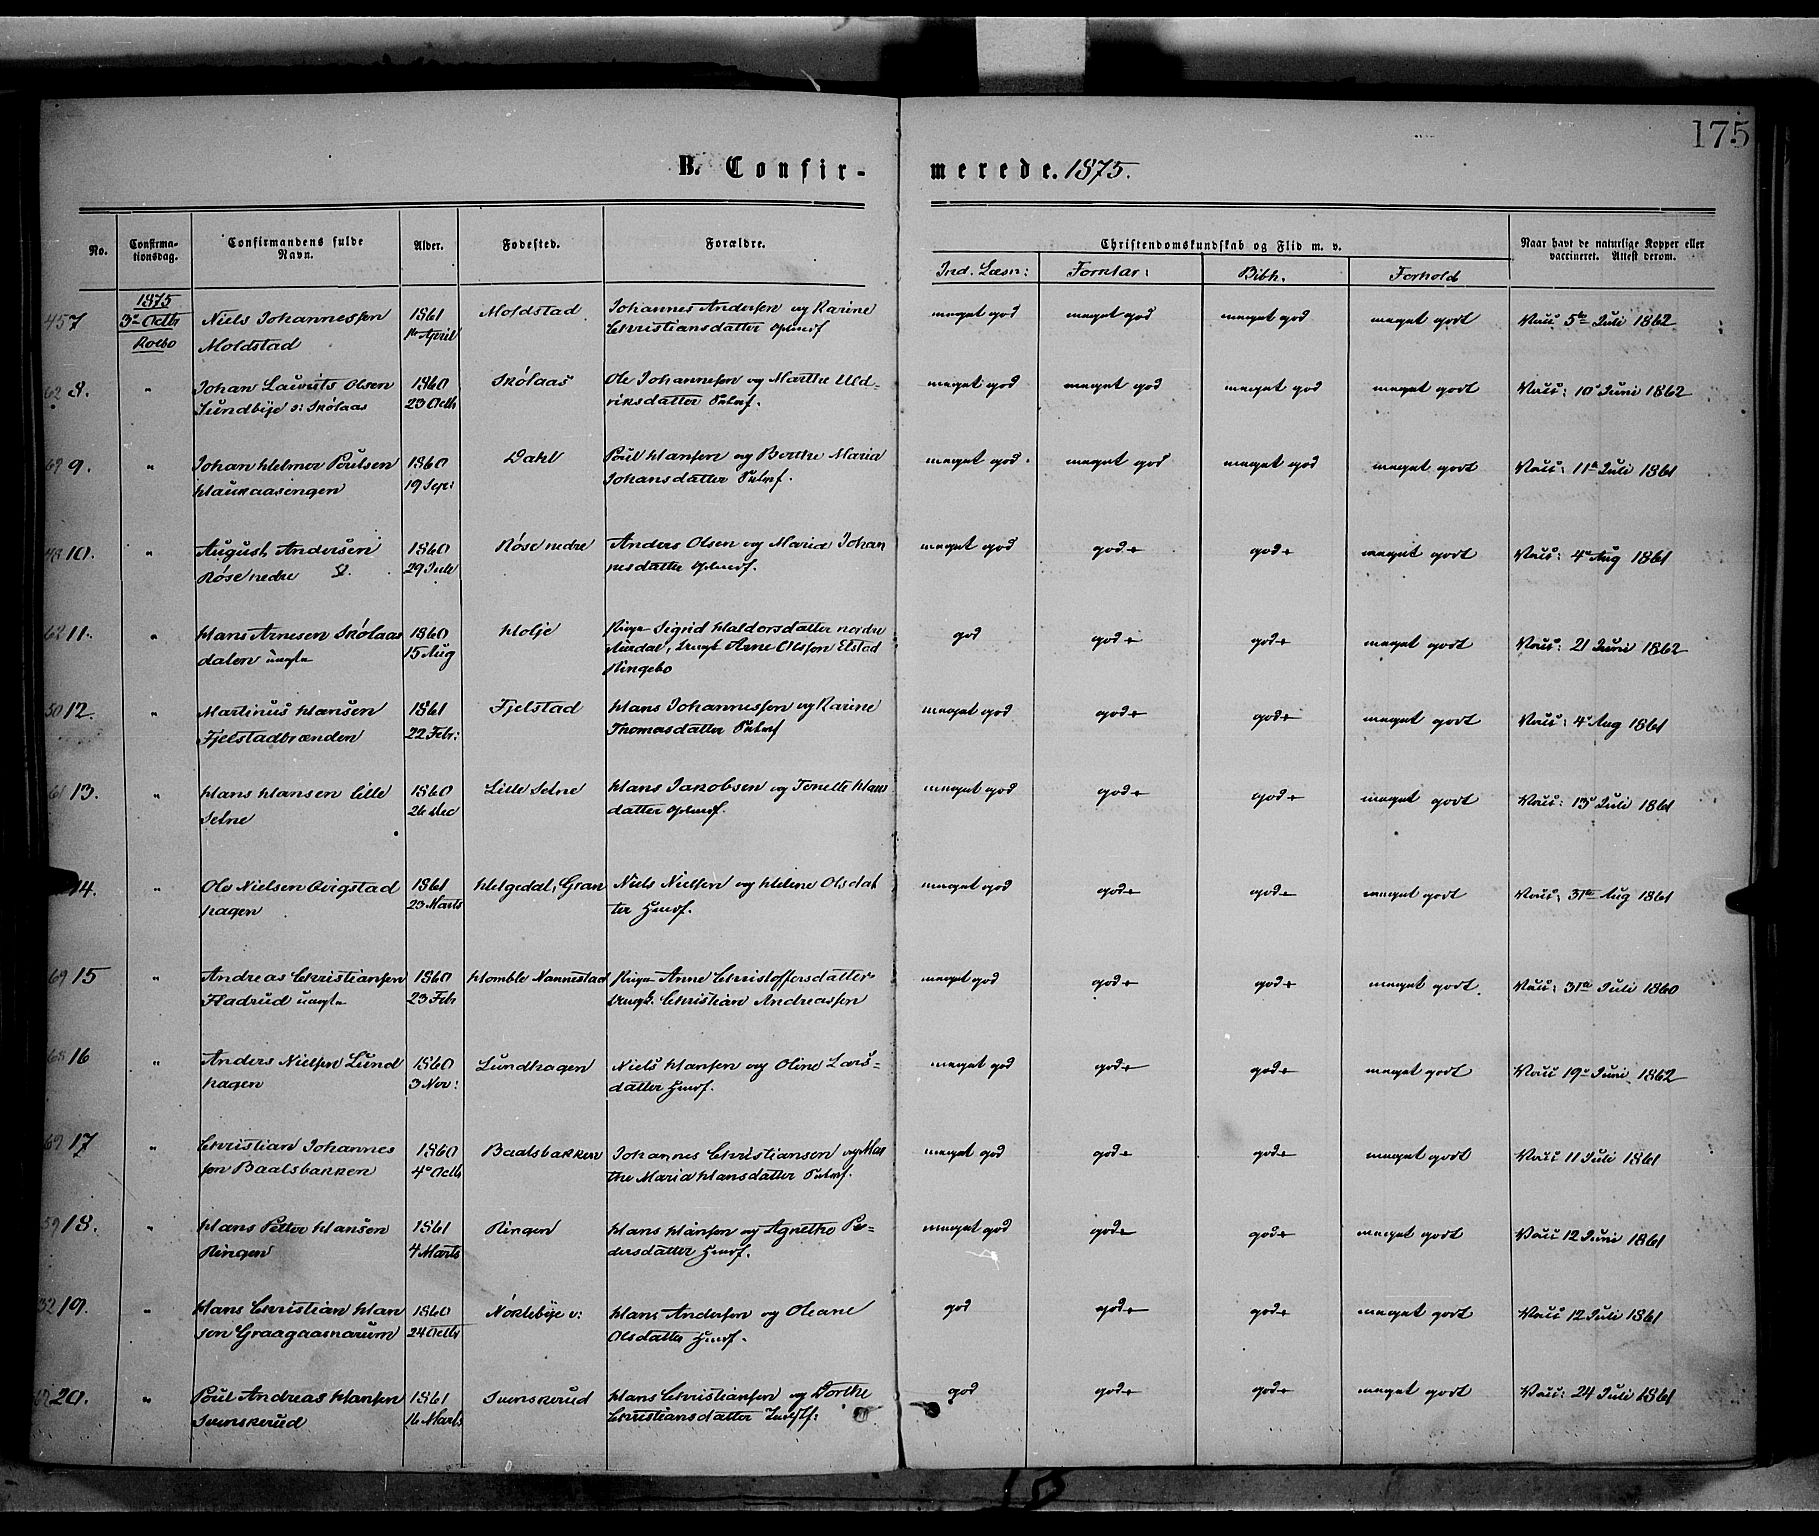 175
B. Confirmerede. 1875.
No. Confirmationsdag. Confirmandens fulde Navn. Alder. Fødested. Forældre. Christendomskundskab og Flid m. v. Naar havt de naturlige Kopper eller vaccineret. Attest derom.
Ind. Læsn: Forklar: Bibh. Forhold
1875
7 3die Octb Niels Johannessen 1861 Moldstad Johannes Andersen og Karine meget god meget god meget god meget godt Vacc 5te Juli 1862
Kolbo Moldstad April Christiansdatter
8. " Johan Laurits Olsen 1860 Skølaas Ole Johannesen og Marthe Uld- meget god meget god meget god meget godt Vacc: 10de Juni 1862
Sundbye v: Skølaas 23 Octb riksdatter
9. " Johan Helmer Poulsen 1860 Dahl Poul Hansen og Berthe Maria meget god meget god meget god meget godt Vacc: 11te Juli 1861
Haukaasengen 19 Sep: Johansdatter
10. " August Andersen 1860 Røse nedre Anders Olsen og Maria Johan meget god god+ god+ meget godt Vacc: 4de Aug 1861
Røse nedre 29 Jule nesdatter
62 11. " Hans Arnesen Skølaas 1860 Holje Pige Sigrid Haldorsdatter nordre god god+ god+ meget godt Vacc: 21 Juni 1862
dalen uægte 15 Aug Aurdal, Ungk Arne Olsson Elstad
Ringebo
50 12. " Martinus Hansen 1861 Fjelstad Hans Johannessen og Karine meget god god+ god+ meget godt Vacc: 4de Aug 1861
Fjelstadbrænden 22 Febr: Thomasdatter
61 13. " Hans Hansen lille 1860 Lille Setne Hans Jakobsen og Tenette Hans meget god god+ god+ meget godt Vacc: 13de Juli 1861
Setne 26 Dec datter
14. " Ole Nielsen Qvigstad 1861 Helgedal, Gran Niels Nielsen og Helene Olsdat meget god god+ god+ meget godt Vacc: 31te Aug 1861
hagen 23 Marts ter
69 15 " Andreas Christiansen 1860 Homble Nannestad Pige Anne Christoffersdatter meget god god+ god+ meget godt Vacc: 31te Juli 1860
Fladrud uægte 23 Febr Ungk. Christian Andreassen
68 16 " Anders Nielsen Lund 1860 Lundhagen Niels Hansen og Oline Lars- meget god god+ god+ meget godt Vacc 19de Juni 1862
hagen 3 Nov: datter
69 17 " Christian Johannes 1860 Baalsbakken Johannes Christiansen og Mar meget god god+ god+ meget godt Vacc 11 Juli 1861
sen Baalsbakken 4de Octb the Maria Hansdatter
59 18. " Hans Petter Hansen 1861 Ringen Hans Hansen og Agnethe Pe- meget god god+ god+ meget godt Vacc 12 Juni 1861
Ringen 4 Marts dersdatter
32 19. " Hans Christian Han 1860 Nøklebye v: Hans Andersen og Oleane god god+ god+ meget godt Vacc 12 Juli 1861
sen Graagaasnarum 24 Octb Olsdatter
20. " Poul Andreas Hansen 1861 Svenskerud Hans Christiansen og Dorthe god god+ god+ meget godt Vacc: 24 Juli 1861
Svenskerud 16 Marts Christiansdatter